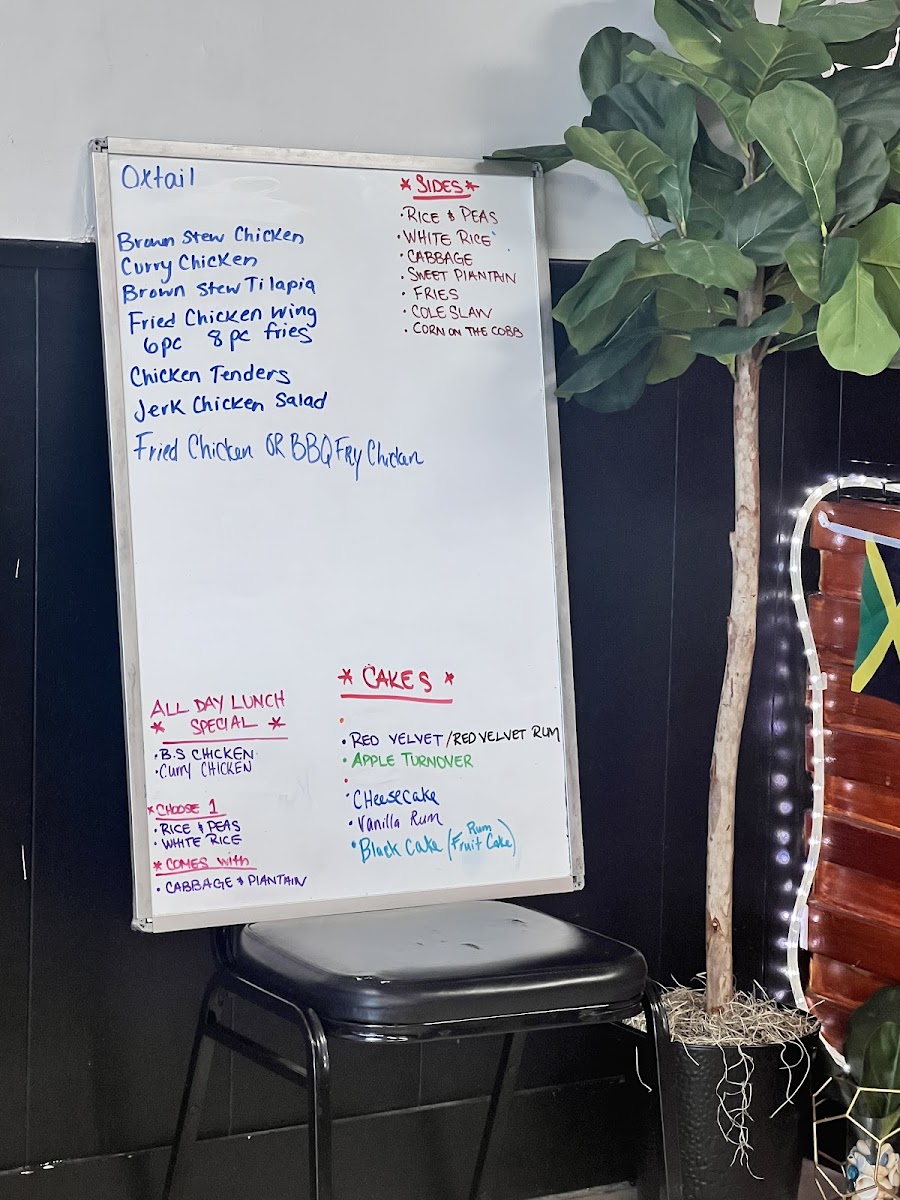 Oxtail
Brown Stew Chicken
Curry Chicken
Brown Stew Tilapia
Fried Chicken Wing
6pc 8pc fries
Chicken Tenders
Jerk Chicken Salad
Fried Chicken OR BBQ Fry Chicken
* SIDES *
• RICE & PEAS
• WHITE RICE
• CABBAGE
• SWEET PLANTAIN
• FRIES
• COLE SLAW
• CORN ON THE COBB
ALL DAY LUNCH
* SPECIAL *
• B.S CHICKEN
• Curry CHICKEN
* CHOOSE 1
• RICE & PEAS
• WHITE RICE
* COMES with
• CABBAGE & PLANTAIN
* CAKES *
• RED VELVET / RED VELVET RUM
• APPLE TURNOVER
• CHeeseCake
• Vanilla Rum
• Black Cake (Rum Fruit Cake)